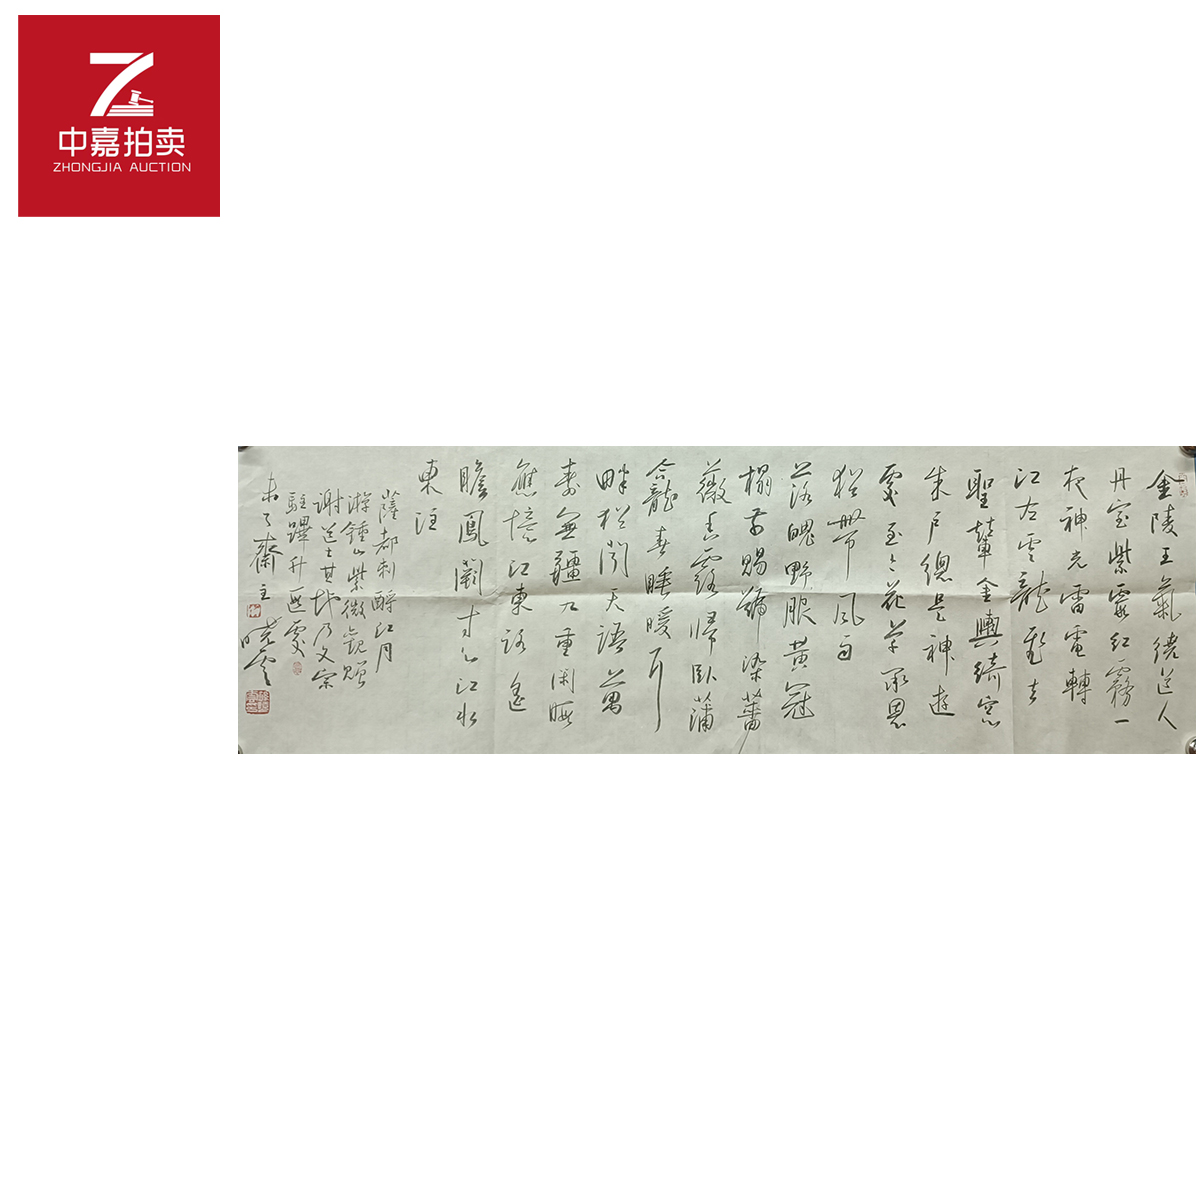 中嘉拍卖
ZHONGJIA AUCTION
金陵王氣繞道人
丹室紫霞紅霧一
夜神光雷電轉
江左雲龍飛去
聖輦金輿綺窓
朱戶總是神遊
處至今花草承恩
猶帶風雨
落魄野服黃冠
榻前賜號染薔
薇香露歸臥蒲
龕春睡暖耳
畔猶聞天語萬
壽無疆九重閑暇
應憶江東路遙
瞻鳳闕寸心江水
東注
薩都剌酹江月
遊鍾山紫微觀贈
謝道士其地乃文宗
駐蹕升遐處
未了齋主
曉雲